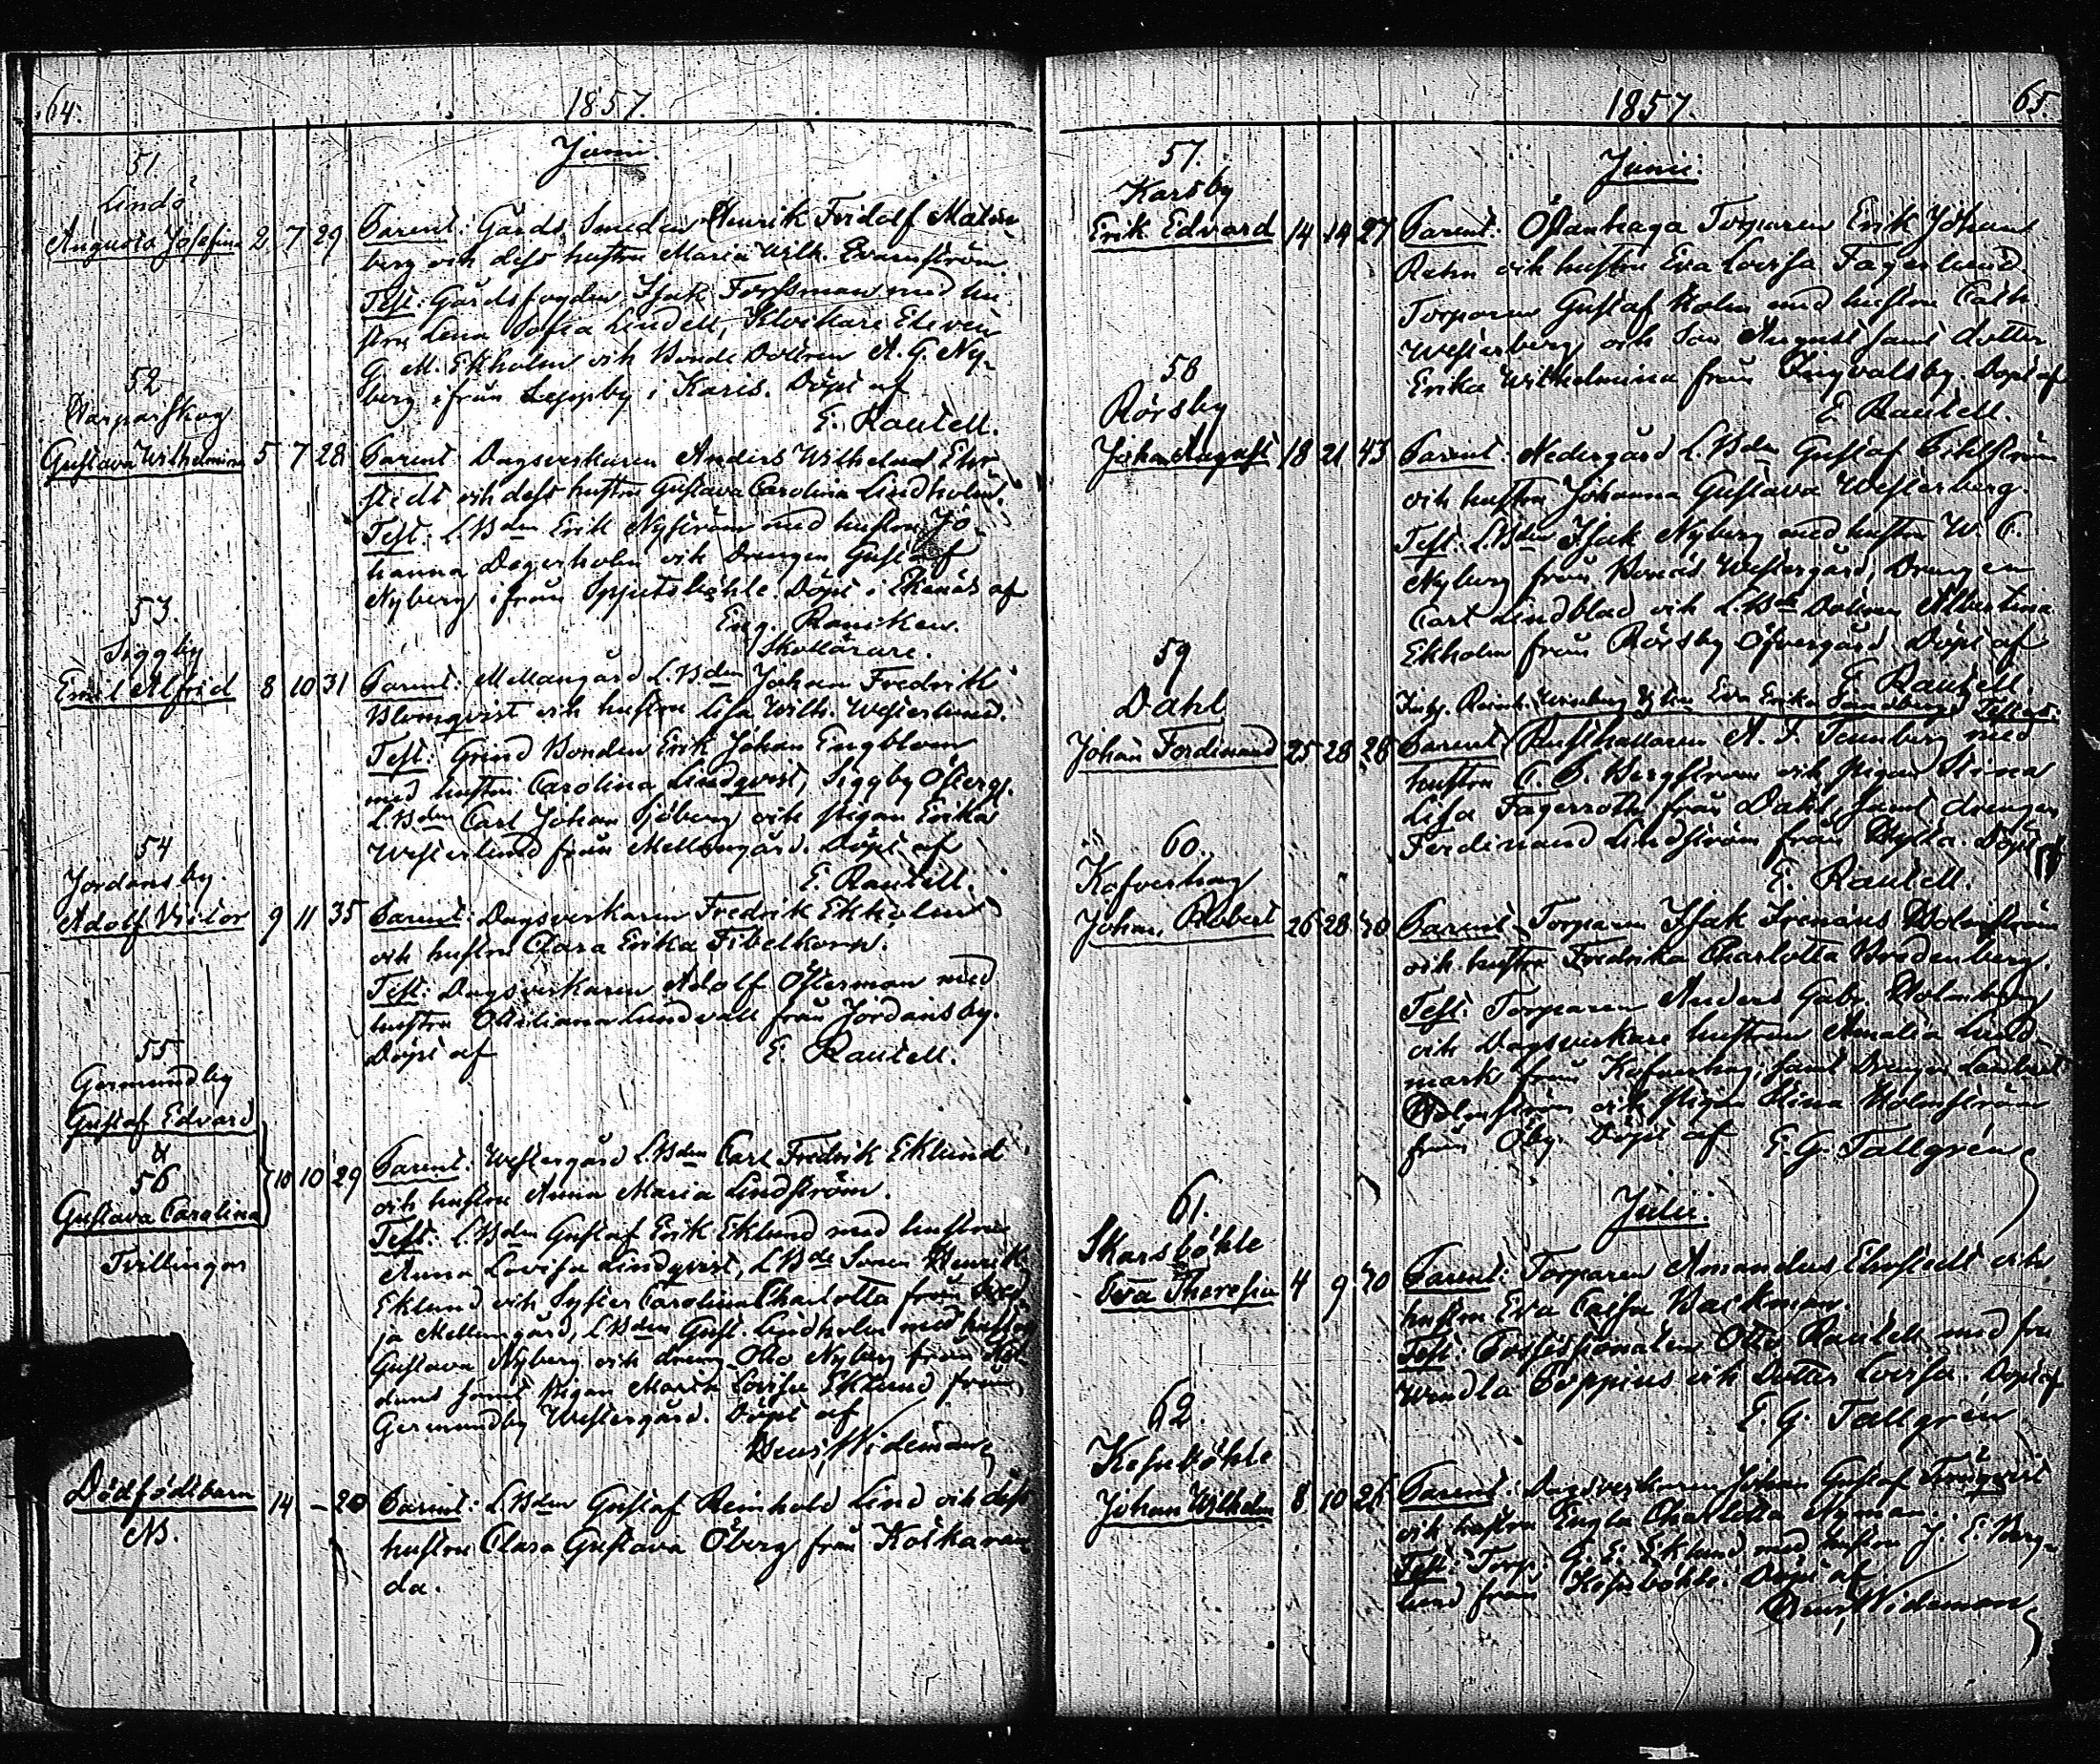 64.
1857.
Junii.
51.
Lindö
Augusta Josefina 2 7 29
Parent: Gårds Smeden Henrik Fridolf Malm-
berg och dess hustru Maria Wilh. Evanström.
Test: Gårdsfogden Isak Forssman med hu-
stru Lena Sofia Lindell, Klockare Eleven
G. M. Ekholm och Bonde Dottren A. G. Ny-
berg ifrån Leppby i Karis. Döpt af
E. Rautell.
52
Harparskog
Gustava Wilhelmina 5 7 28
Parent: Dagsverkaren Anders Wilhelm Ehr-
stedt och dess hustru Gustava Carolina Lindholm.
Test: L.Bden Erik Nyström med hustru Jo-
hanna Dagerholm och Drengen Gustaf
Nyberg ifrån Spjutsböhle. Döpt i Ekenäs af
Eng. Raniken.
Skollärare.
53.
Siggby
Emil Alfrid 8 10 31
Parent: Mellangård L.Bden Johan Fredrik
Blomqvist och hustru Lisa Wilh. Westerlund.
Test: Grind Bonden Erik Johan Engblom
med hustru Carolina Lindqvist, Siggby Österg.
L.Bden Carl Johan Sjöberg och pigan Erika
Westerlund från Mellangård. Döpt af
E. Rautell.
54
Jordansby.
Adolf Victor 9 11 35
Parent: Dagsverkaren Fredrik Ekholm
och hustru Clara Erika Fibelkorn.
Test: Dagsverkaren Adolf Österman med
hustru Ottiliana Lundvall från Jordansby.
Döpt af E. Rautell.
55
Germundby
Gustaf Edvard
&
56
Gustava Carolina
Tvillingar
10 10 29
Parent: Westergård L.Bden Carl Fredrik Eklund
och hustru Anna Maria Lindström.
Test: L.Bden Gustaf Erik Eklund med hustru
Anna Lovisa Lindqvist, L.Bde Sonen Henrik
Eklund och Syster Carolina Charlotta från
Mellangård, L.Bden Gust. Lindholm med hustru
Gustava Nyberg och dreng Otto Nyberg från
samt Pigan Maria Lovisa Eklund från
Germundby Westergård. Döpt af
Henr. Wideman
Dödfödt barn 14 – 20
NB.
Parent: L.Bden Gustaf Reinhold Lind och dess
hustru Clara Gustava Öberg från Koskaran-
da.
1857.
65.
Junii.
57.
Karsby
Erik Edvard 14 14 27
Parent: Östanhaga Torparen Erik Johan
Rehn och hustru Eva Lovisa Fagerlund.
Torparen Gustaf Holm med hustru Cath.
Westerberg och Son August samt dotter
Erika Wilhelmina från Ingvalsby. Döpt af
E. Rautell.
58
Rörsby
Johan August 18 21 43
Parent: Nedergård L.Bden Gustaf Pihlström
och hustru Johanna Gustava Westerberg.
Test: L.Bden Isak Nyberg med hustru W. C.
Nyberg från Westergård, Drengen
Carl Lindblad och L.Bde Dottren Albertina
Ekholm från Rörsby Öfvergård. Döpt af
E. Rautell.
59
Dahl
Johan Ferdinand 25 28 28
Inhy. Reinh. Winberg & hu Eva Erika Sandberg Testes:
Parent: Rusthållaren A. F. Tennberg med
hustru C. S. Bergström och pigan Stina
Lisa Fagerroth från Dahl, samt drengen
Ferdinand Lindström från Hylta. Döpt af
E. Rautell.
60.
Kofverhag
Johan Robert 26 28 40
Parent: Torparen Isak Irenæus Holmström
och hustru Fredrika Charlotta Bredenberg.
Test: Torparen Anders Gabr. Holmberg
och Dagsverkare hustrun Amalia Lind-
mark från Kofverhag, samt Drengen Lambert
Holmström och Pigan Stina Holmström
från Öby. Döpt af E. G. Tallgren
Julii.
61.
Skarsböhle
Eva Theresia 4 9 40
Parent: Torparen Amandus Ehrstedt och
hustru Eva Caisa Backman.
Test: Possessionaten Otto Rautell med fru
Wendla Poppius och Dotter Lovisa. Döpt af
E. G. Tallgren
62.
Kesuböhle
Johan Wilhelm 8 10 26
Parent: Dagsverkaren Johan Gustaf
och hustru Engla Charlotta Nyman.
Test: Torp. G. E. Eklund med hustru J. E. Berg-
lund från Kesuböhle. Döpt af
Henr. Wideman